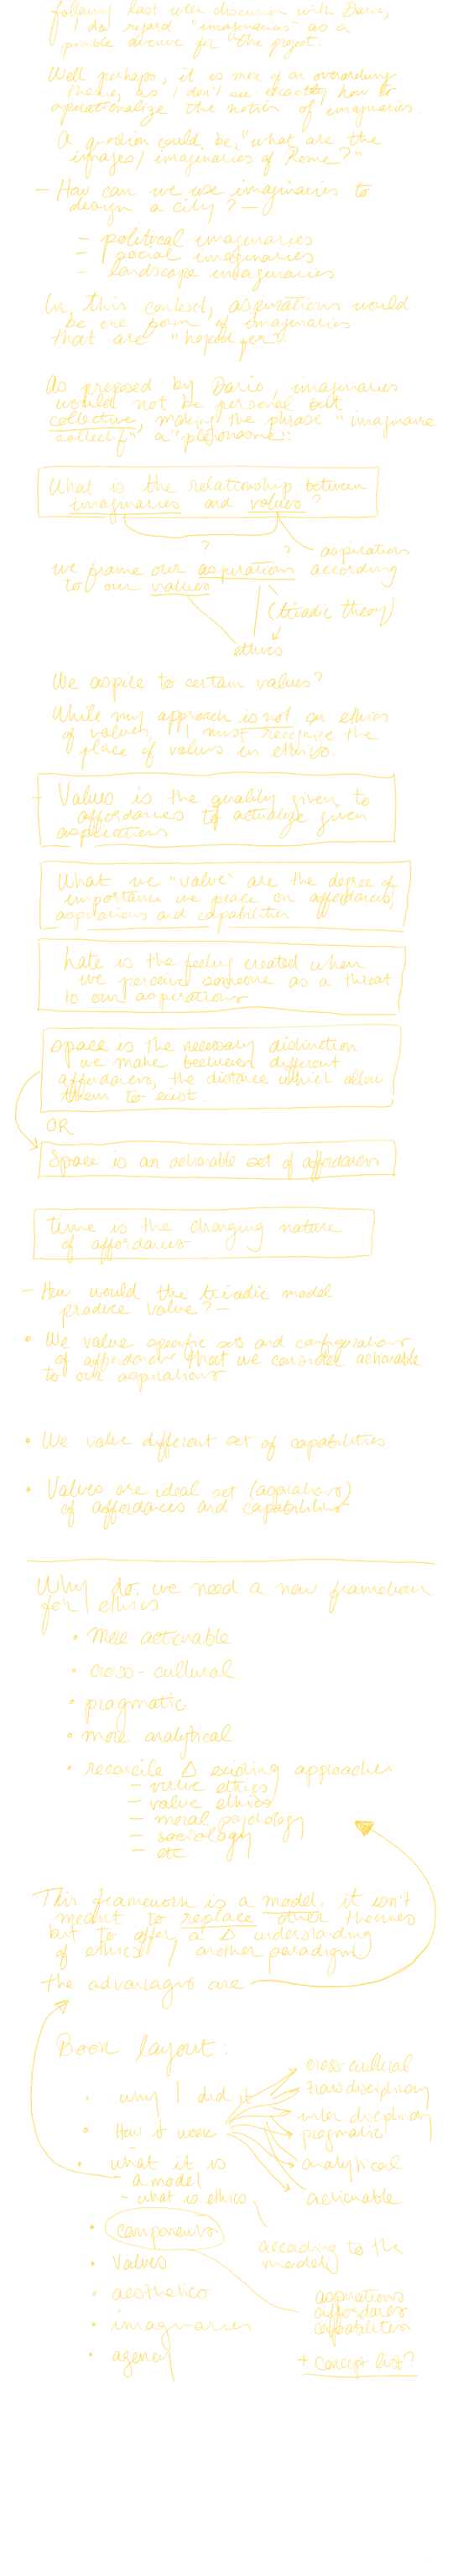 following last week discussion with Dario,
I do regard "imaginaries" as a
possible for the project.
Well perhaps, it is more of an overarching
theme, as I don't see exactly how to
operationalize the notion of imaginaries.
A question could be, "what are the
images/imaginaries of Rome?"
- How can we use imaginaries to
design a city? -
- political imaginaries
- social imaginaries
- landscape imaginaries
In this context, aspirations would
be one form of imaginaries
that are "hoped for".
As proposed by Dario, imaginaries
would not be personal but
collective, making the phrase "imaginaire
collectif" a "pleonasme".
What is the relationship between
imaginaries and values?
? ? aspirations
we frame our aspirations according
to our values
(triadic theory)
ethics
We aspire to certain values?
While my approach is not an ethics
of values, I must recognize the
place of values in ethics.
- Values is the quality given to
affordances to actualize given
aspirations
What we "value" are the degree of
importance we place on affordances,
aspirations and capabilities
hate is the feeling created when
we perceive someone as a threat
to our aspirations
space is the necessary distinction
we make between different
affordances, the distance which allow
them to exist.
OR
Space is an actionable set of affordances
time is the changing nature
of affordances
- How would the triadic model
produce value? -
• We value specific sets and configurations
of affordances that we consider actionable
to our aspirations
• We value different set of capabilities
• Values are ideal set (aspirations)
of affordances and capabilities
Why do we need a new framework
for ethics
• more actionable
• cross-cultural
• pragmatic
• more analytical
• reconcile Δ existing approaches
- virtue ethics
- value ethics
- moral psychology
- sociology
- etc
This framework is a model. it isn't
meant to replace other theories
but to offer a Δ understanding
of ethics / another paradigm
the advantages are
Book layout:
• why I did it
• How it work
• what it is
a model
- what is ethics
• components
• Values
• aesthetics
• imaginaries
• agency
cross-cultural
transdisciplinary
interdisciplinary
pragmatic
analytical
actionable
according to the
model
aspirations
affordances
capabilities
+ concept list?